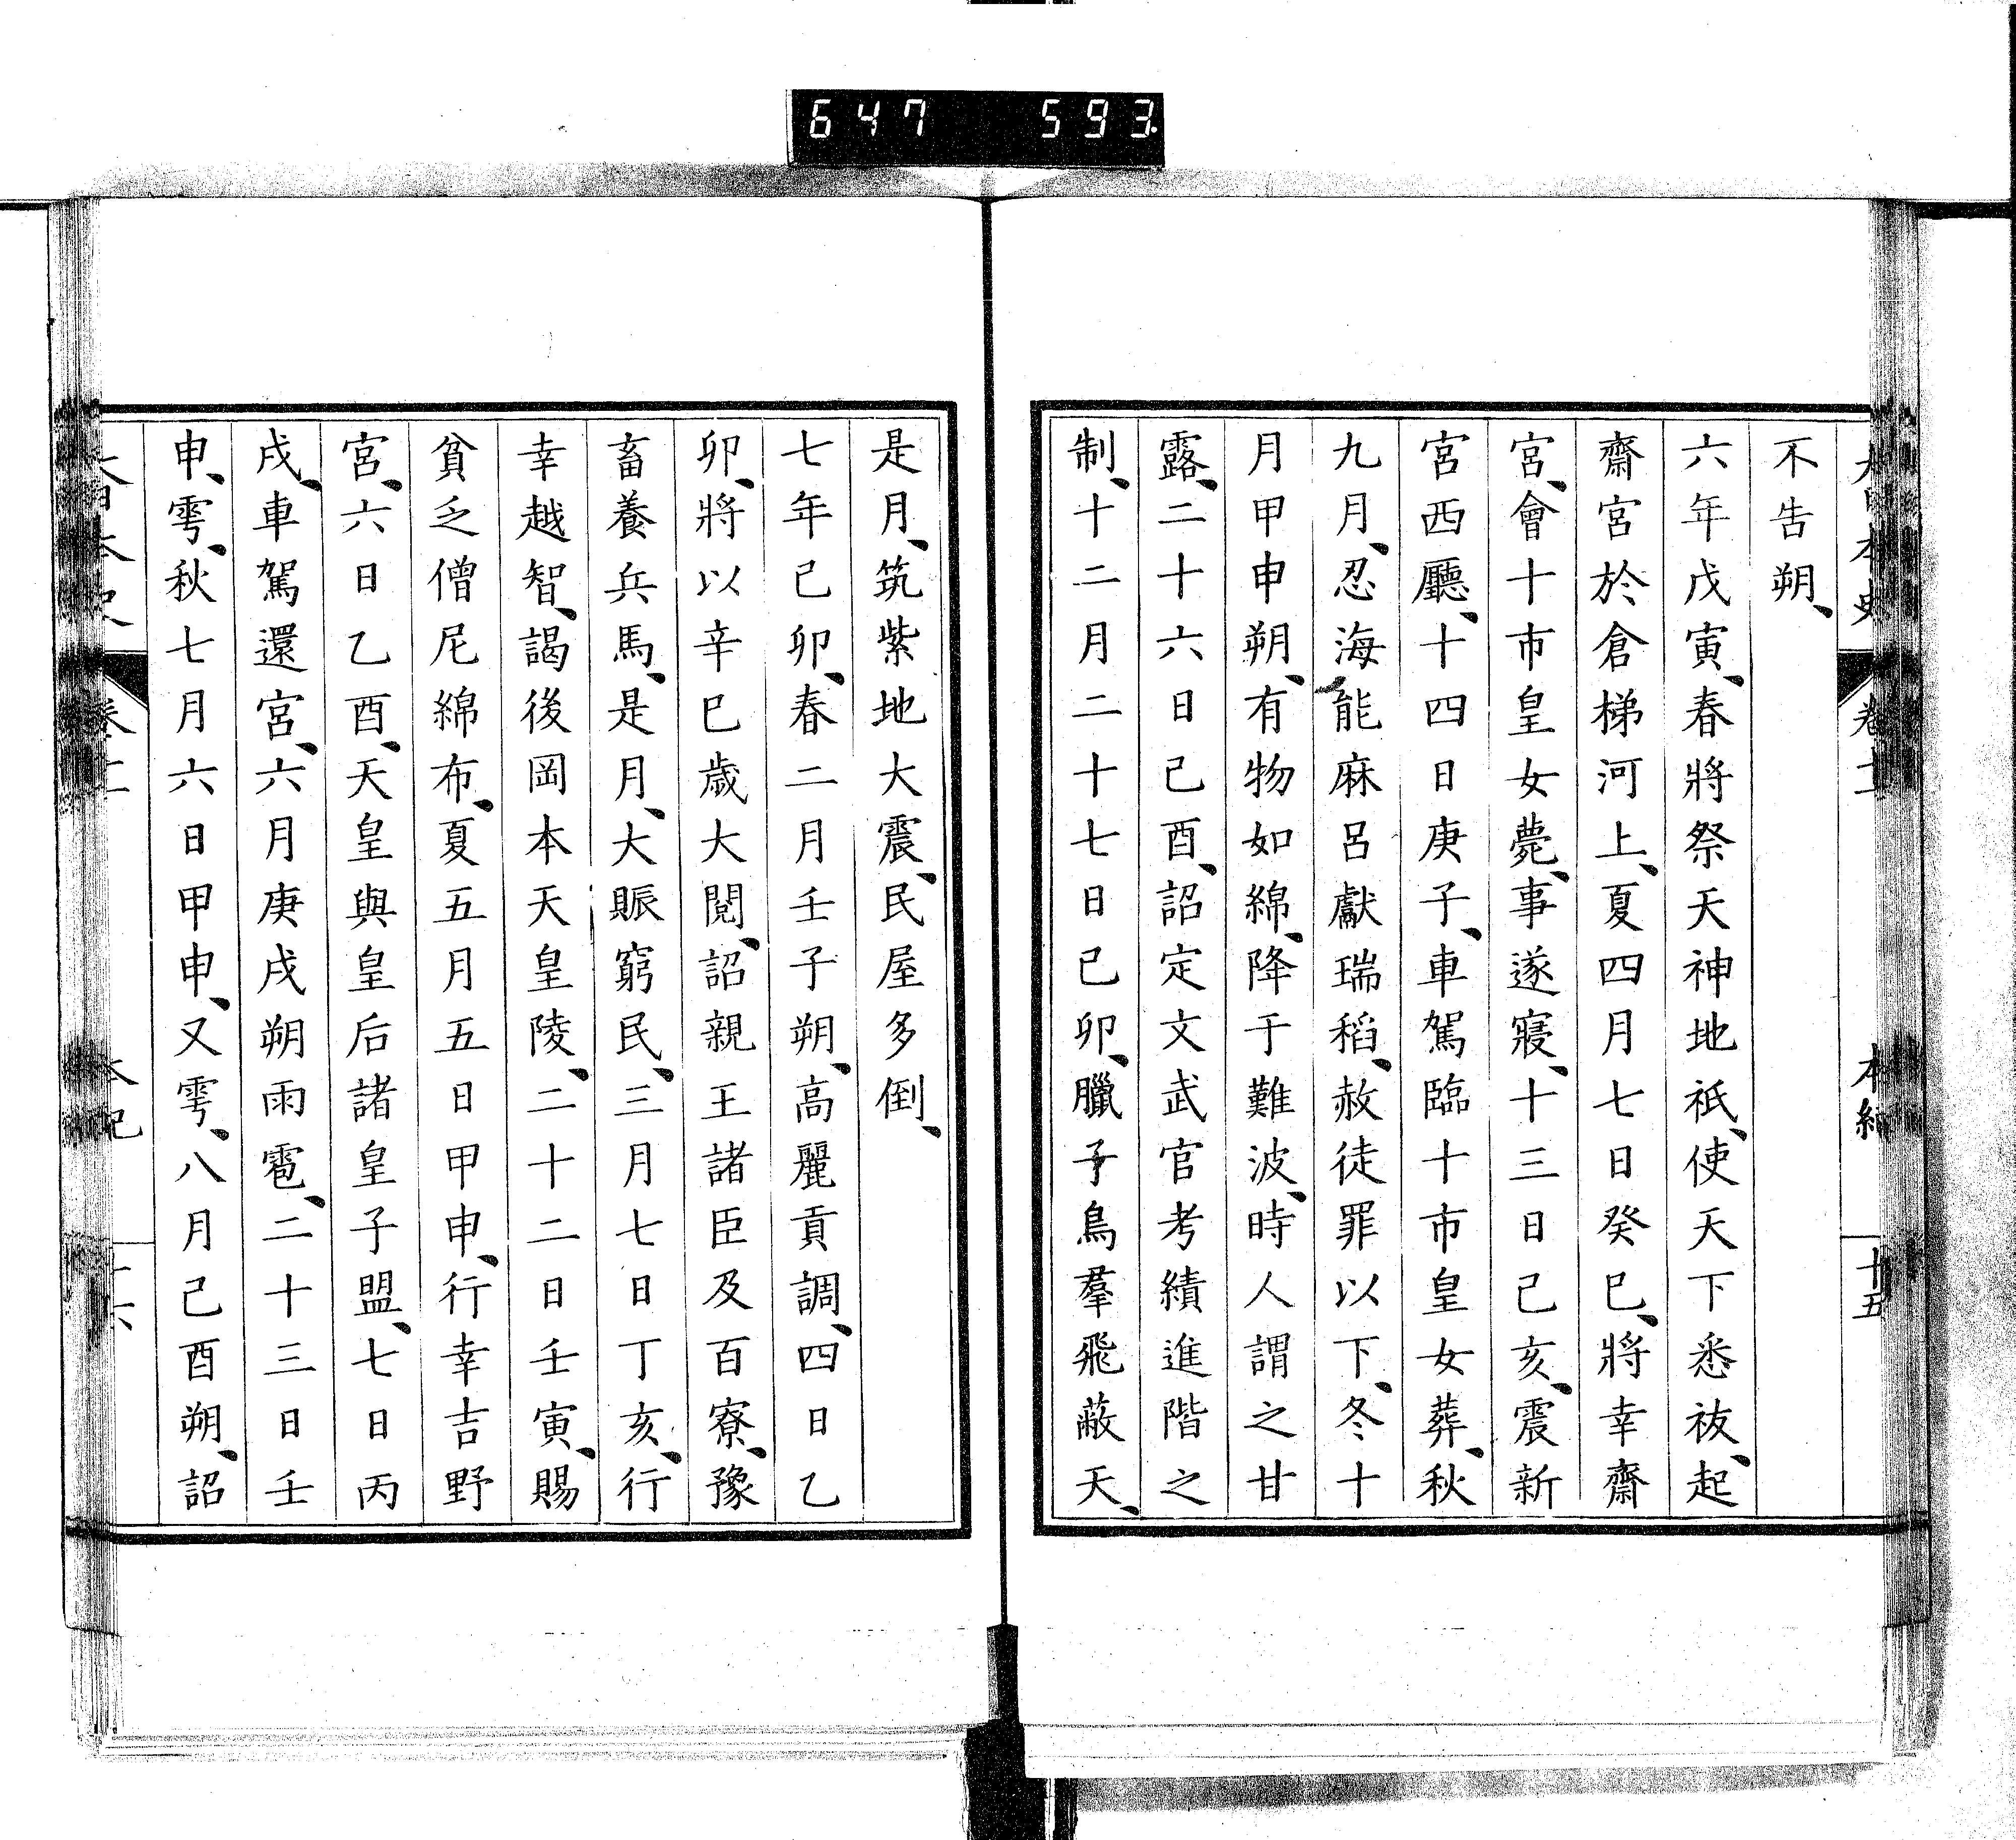 647 593
大日本史 卷十一 本紀 十五
不告朔、
六年戊寅、春將祭天神地祇、使天下悉祓、起
齋宮於倉梯河上、夏四月七日癸巳、將幸齋
宮、會十市皇女薨、事遂寢、十三日己亥、震新
宮西廳、十四日庚子、車駕臨十市皇女葬、秋
九月、忍海能麻呂獻瑞稻、赦徒罪以下、冬十
月甲申朔、有物如綿、降于難波、時人謂之甘
露、二十六日己酉、詔定文武官考績進階之
制、十二月二十七日己卯、臘子鳥羣飛蔽天、
是月、筑紫地大震、民屋多倒、
七年己卯、春二月壬子朔、高麗貢調、四日乙
卯、將以辛巳歲大閱、詔親王諸臣及百寮、豫
畜養兵馬、是月、大賑窮民、三月七日丁亥、行
幸越智、謁後岡本天皇陵、二十二日壬寅、賜
貧乏僧尼綿布、夏五月五日甲申、行幸吉野
宮、六日乙酉、天皇與皇后諸皇子盟、七日丙
戌、車駕還宮、六月庚戌朔雨雹、二十三日壬
申、雩、秋七月六日甲申、又雩、八月己酉朔、詔